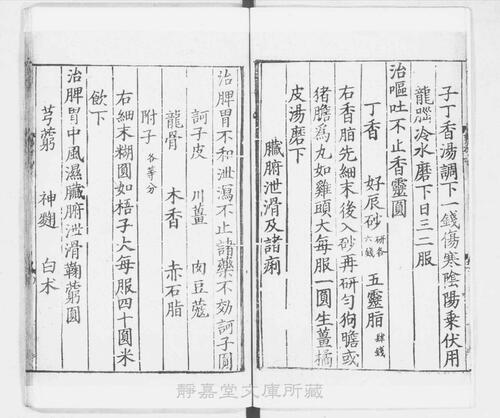 子丁香湯調下一錢傷寒陰陽乗伏用
龍𦛁冷水磨下日三二服
治嘔吐不止香靈圓
丁香 好辰砂研各六錢 五靈脂肆錢
右香脂先細末後入砂再研勻狗膽或
猪膽為丸如雞頭大每服一圓生薑橘
皮湯磨下
臟腑泄滑及諸痢
治脾胃不和泄瀉不止諸藥不効訶子圓
訶子皮 川薑 肉豆蔻
龍骨 木香 赤石脂
附子各等分
右細末糊圓如梧子大每服四十圓米
飲下
治脾胃中風濕臟腑泄滑鞠藭圓
芎藭 神麴 白朮
靜嘉堂文庫所藏